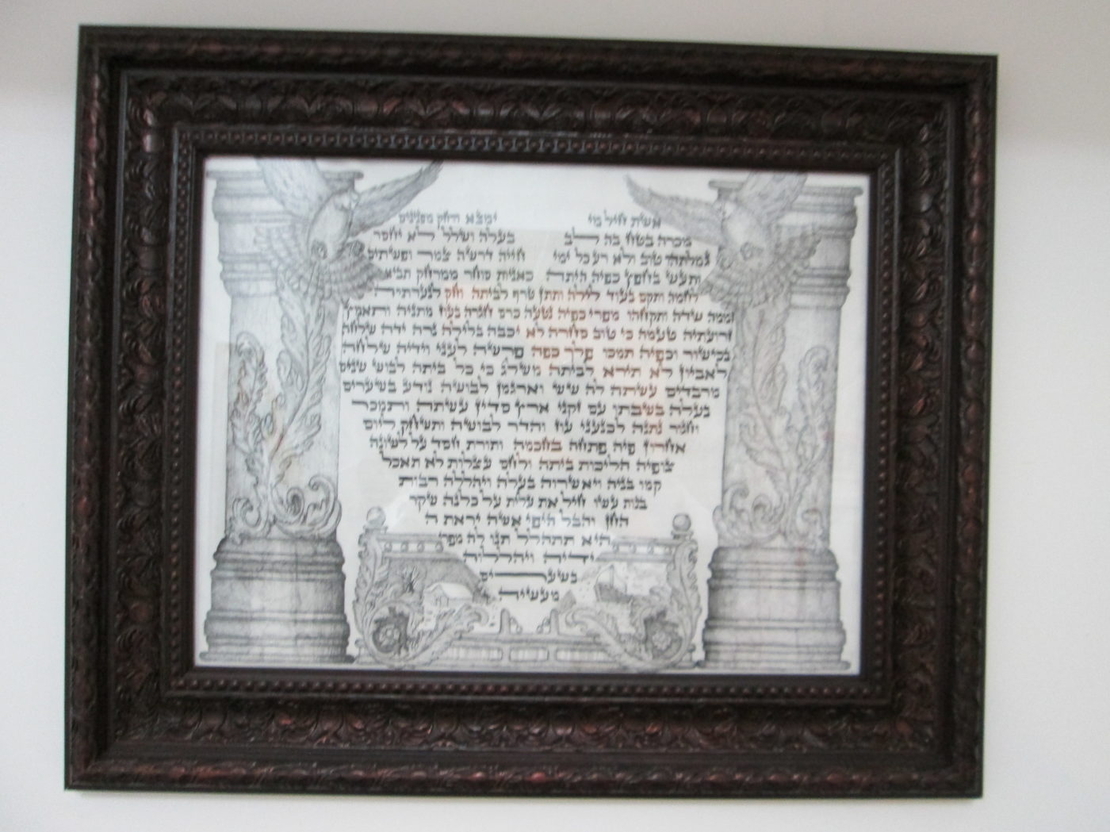 אשת חיל מי ימצא ורחק מפנינים
מכרה בטח בה לב בעלה ושלל לא יחסר
גמלתהו טוב ולא רע כל ימי חייה דרשה צמר ופשתים
ותעש בחפץ כפיה היתה כאניות סוחר ממרחק תביא
לחמה ותקם בעוד לילה ותתן טרף לביתה וחק לנערתיה
זממה שדה ותקחהו מפרי כפיה נטעה כרם חגרה בעוז מתניה ותאמץ
זרועתיה טעמה כי טוב סחרה לא יכבה בלילה נרה ידיה שלחה
בכישור וכפיה תמכו פלך כפה פרשה לעני וידיה שלחה
לאביון לא תירא לביתה משלג כי כל ביתה לבוש שנים
מרבדים עשתה לה שש וארגמן לבושה נודע בשערים
בעלה בשבתו עם זקני ארץ סדין עשתה ותמכר
וחגור נתנה לכנעני עוז והדר לבושה ותשחק ליום
אחרון פיה פתחה בחכמה ותורת חסד על לשונה
צופיה הליכות ביתה ולחם עצלות לא תאכל
קמו בניה ויאשרוה בעלה ויהללה רבות
בנות עשו חיל ואת עלית על כלנה שקר
החן והבל היפי אשה יראת ה
היא תתהלל תנו לה מפרי
ידיה ויהללוה
בשערים
מעשיה